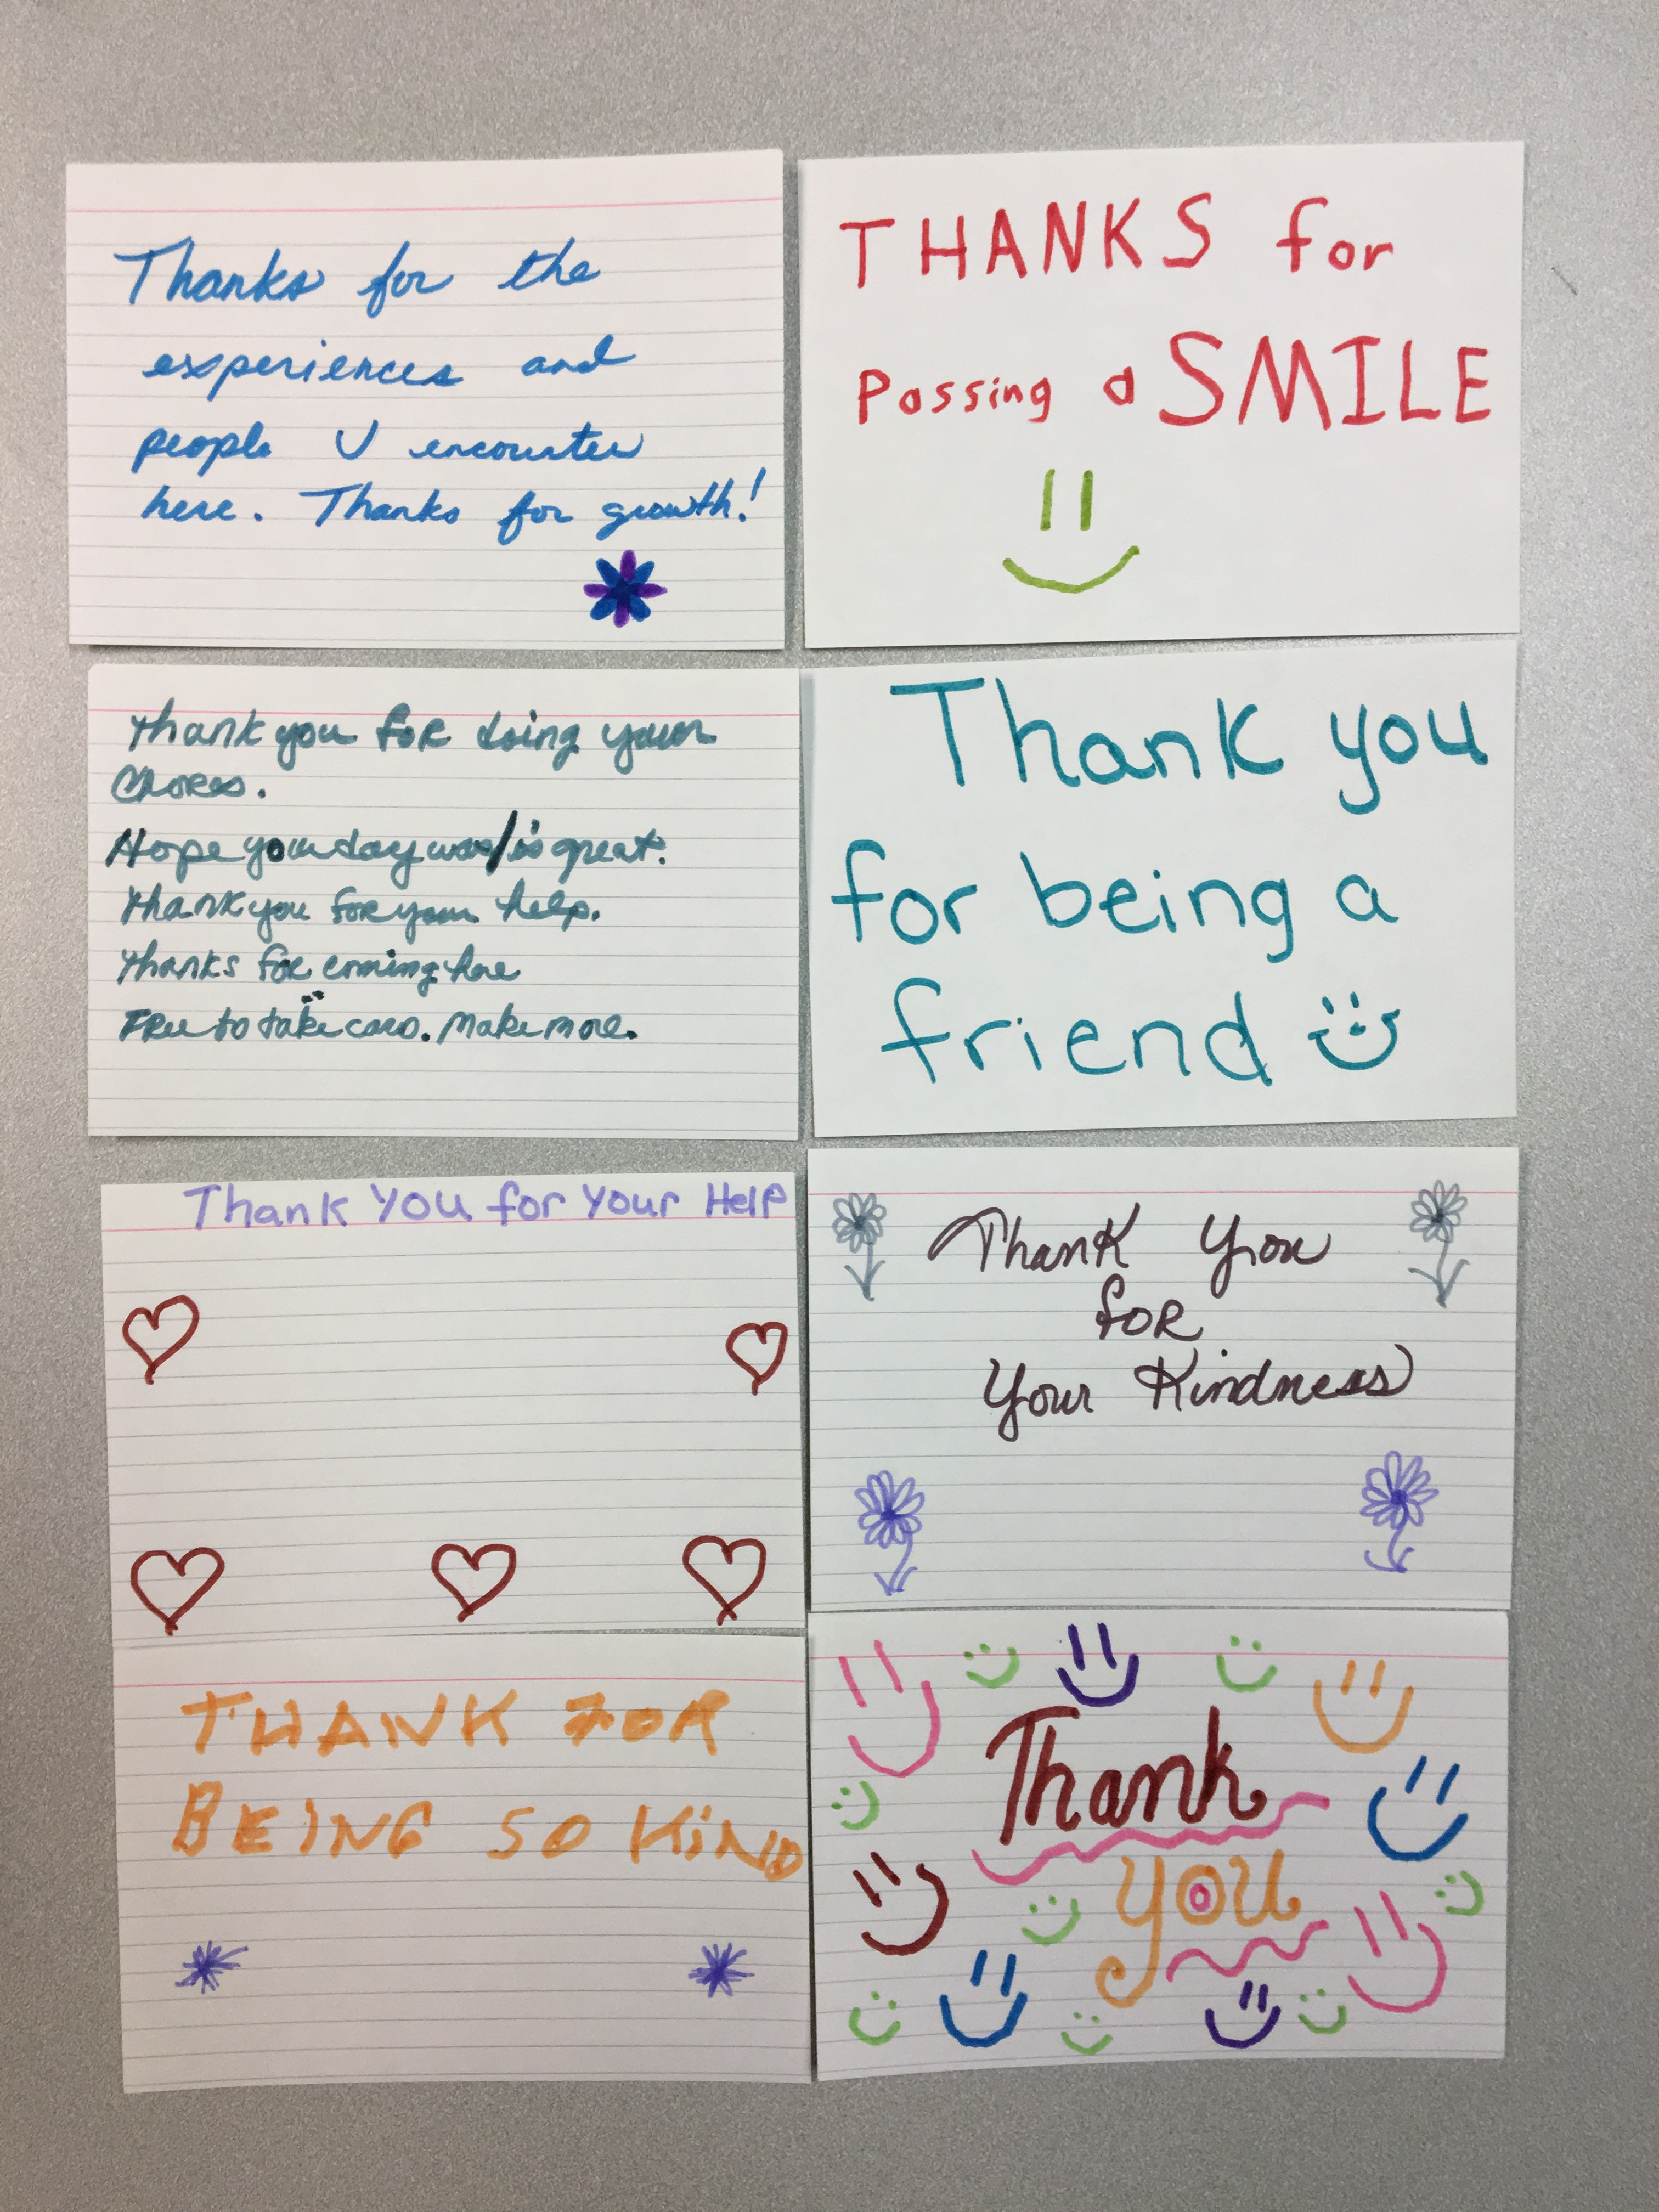 Thanks for the
experiences and
people U encounter
here. Thanks for growth!
THANKS for
Passing a SMILE
Thank you for doing your
Chores.
Hope your day was/is great.
Thank you for your help.
Thanks for coming here
Free to take card. Make more.
Thank you
for being a
friend
Thank You for Your Help
Thank You
for
Your Kindness
THANK FOR
BEING SO KiND
Thank
you